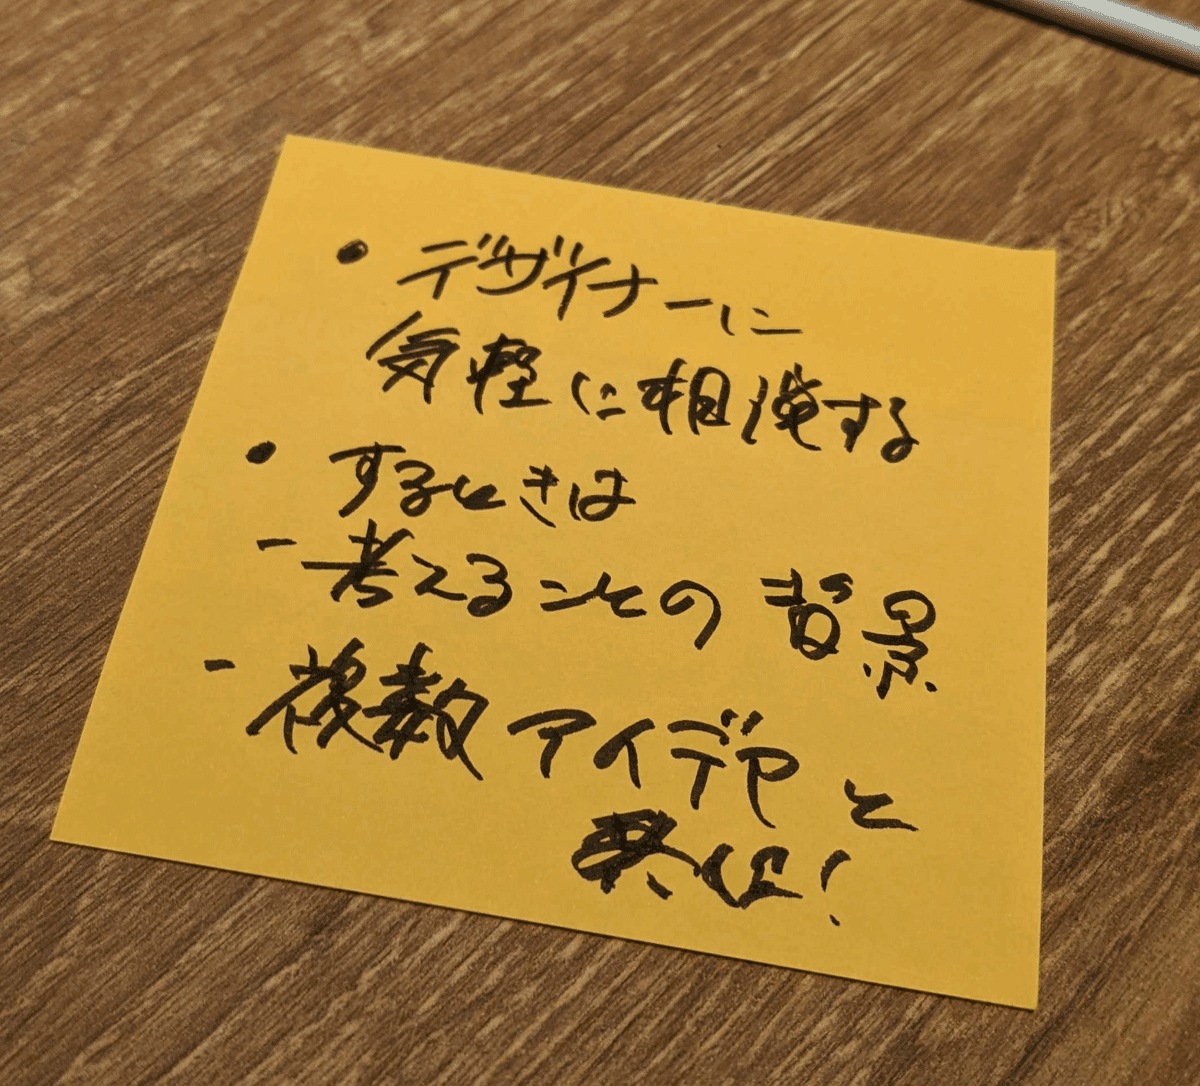 • デザイナーに
気軽に相談する
• するときは
- 考えることの背景
- 複数アイデアと